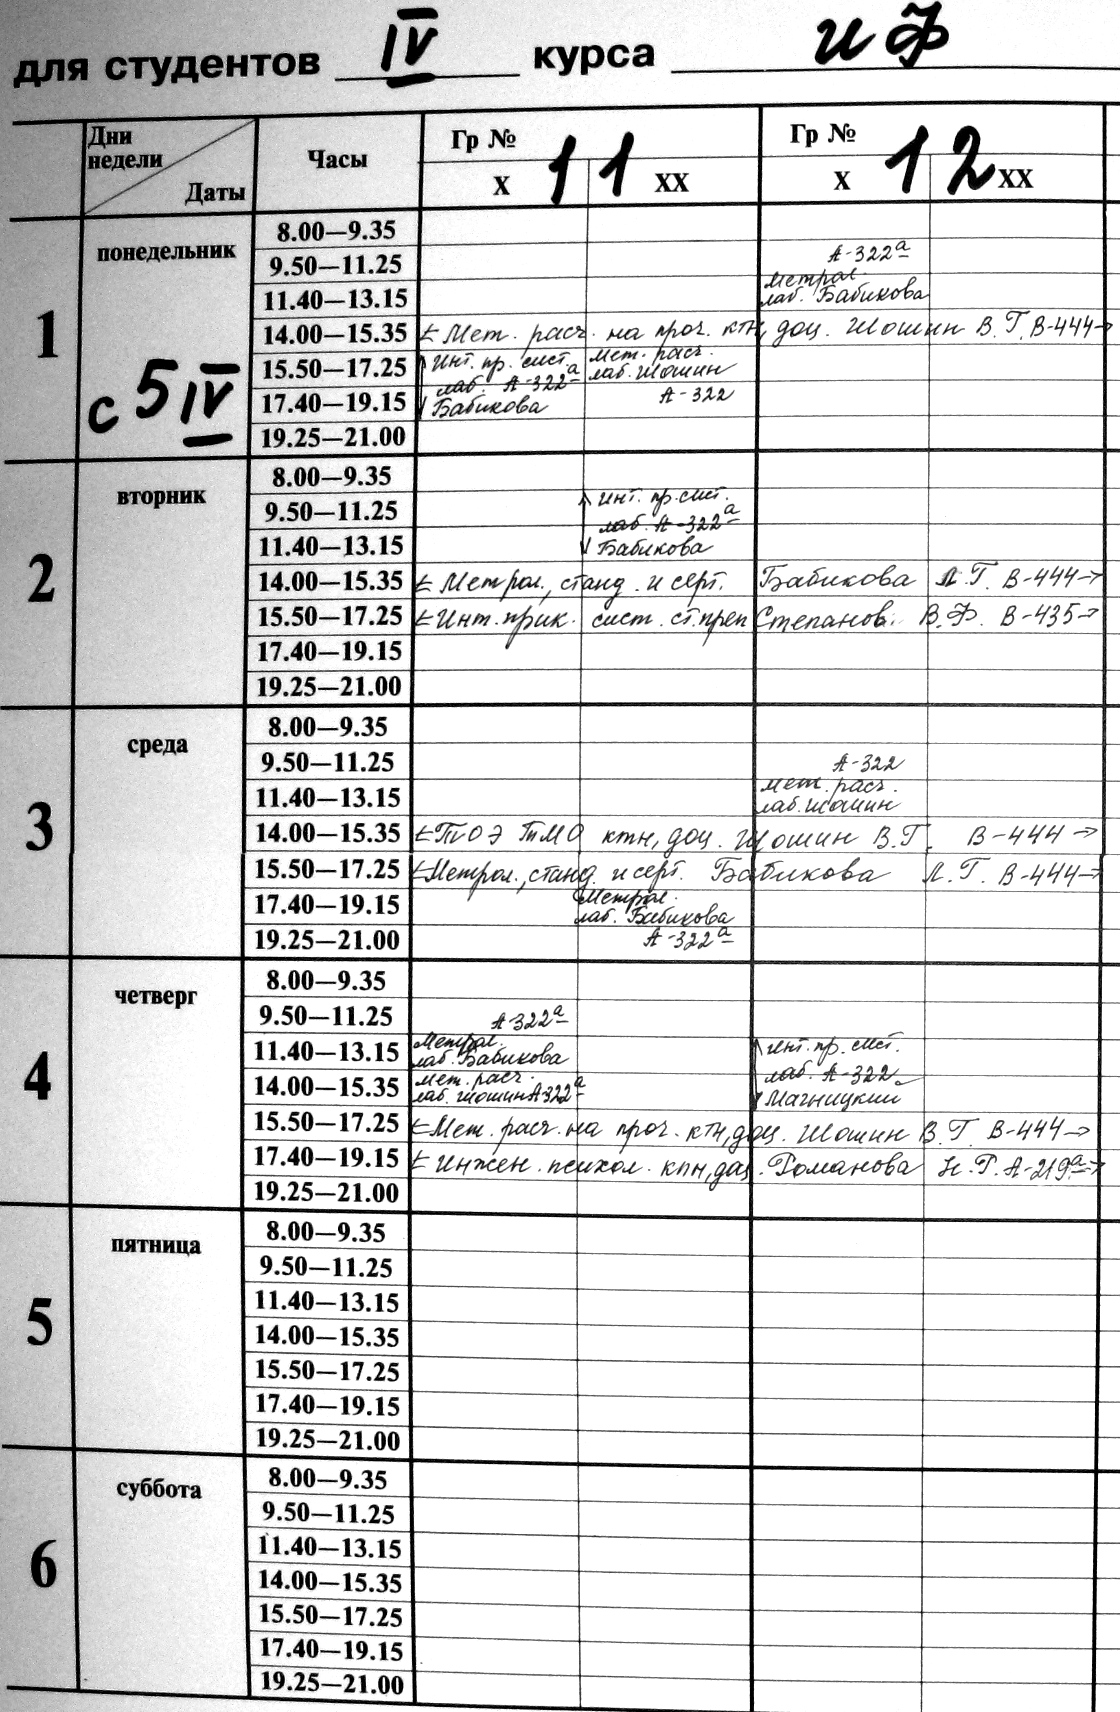 для студентов IV курса ИФ
Дни недели Даты Часы Гр № 11 Гр № 12
X XX X XX
1 понедельник с 5 IV
8.00—9.35
9.50—11.25 А-322а
11.40—13.15 Метрол. лаб. Бабикова
14.00—15.35 Мет. расч. на проч. ктн, доц. Шошин В.Г. В-444
15.50—17.25 Инт. пр. сист. Мет. расч.
лаб. А-322а лаб. Шошин
17.40—19.15 Бабикова А-322
19.25—21.00
2 вторник
8.00—9.35
9.50—11.25 Инт. пр. сист.
лаб. А-322а
11.40—13.15 Бабикова
14.00—15.35 Метрол., станд. и серт. Бабикова Л.Г. В-444
15.50—17.25 Инт. прик. сист. ст. преп Степанов. В.Ф. В-435
17.40—19.15
19.25—21.00
3 среда
8.00—9.35
9.50—11.25 А-322
11.40—13.15 Мет. расч. лаб. Шошин
14.00—15.35 ТиОЭ ТМО ктн, доц. Шошин В.Г. В-444
15.50—17.25 Метрол., станд. и серт. Бабикова Л.Г. В-444
17.40—19.15 Метрол.
лаб. Бабикова
19.25—21.00 А-322а
4 четверг
8.00—9.35
9.50—11.25 А-322а
11.40—13.15 Метрол. лаб. Бабикова Инт. пр. сист.
лаб. А-322
14.00—15.35 Мет. расч. лаб. Шошин А-322а Магницкий
15.50—17.25 Мет. расч. на проч. ктн, доц. Шошин В.Г. В-444
17.40—19.15 Инжен. психол. кпн, доц. Романова Н.Р. А-219а
19.25—21.00
5 пятница
8.00—9.35
9.50—11.25
11.40—13.15
14.00—15.35
15.50—17.25
17.40—19.15
19.25—21.00
6 суббота
8.00—9.35
9.50—11.25
11.40—13.15
14.00—15.35
15.50—17.25
17.40—19.15
19.25—21.00